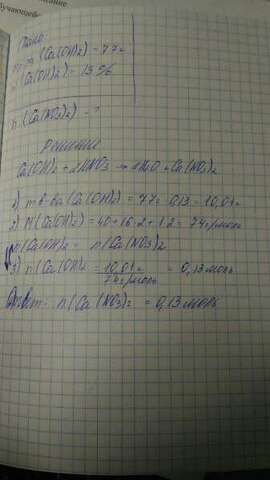 Дано
(Ca(OH)2) = 77г
(Ca(OH)2) = 13%
n (Ca(NO3)2) = ?
Решение
Ca(OH)2 + 2HNO3 → 2H2O + Ca(NO3)2
1) m в-ва (Ca(OH)2) = 77г · 0,13 = 10,01г
2) M(Ca(OH)2) = 40+16·2+1·2 = 74г/моль
n(Ca(OH)2 = n(Ca(NO3)2
3) n(Ca(OH)2 = 10,01г / 74г/моль = 0,13моль
Ответ: n(Ca(NO3)2 = 0,13моль